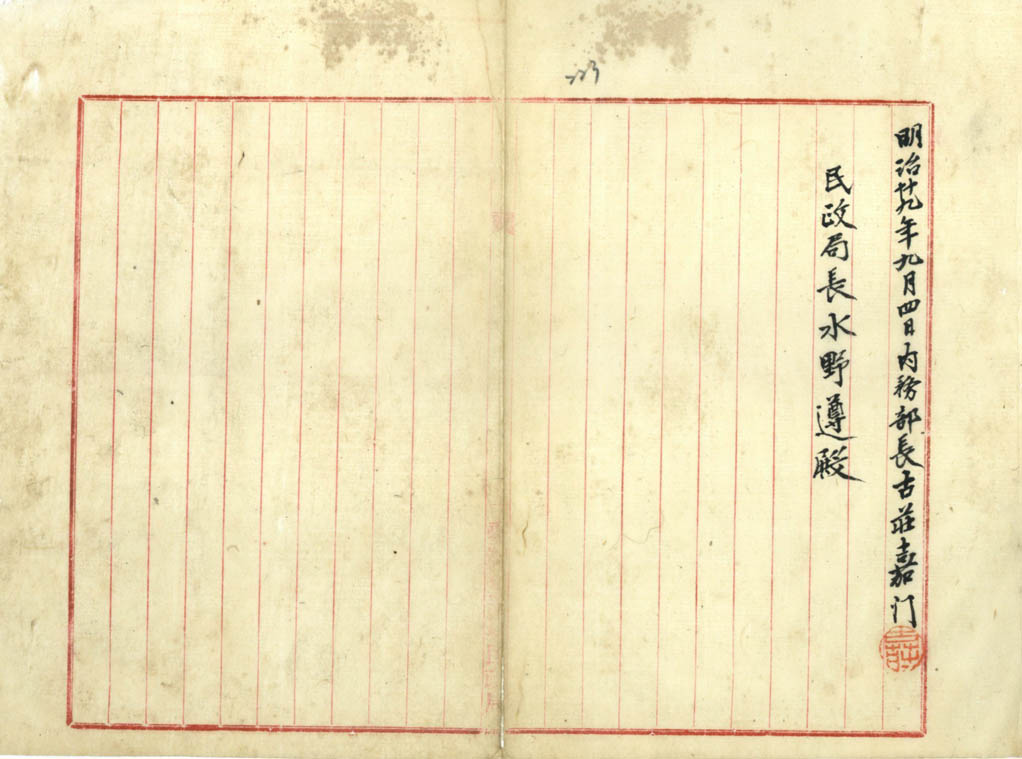 明治廿九年九月四日内務部長古莊嘉门
民政局長水野遵殿